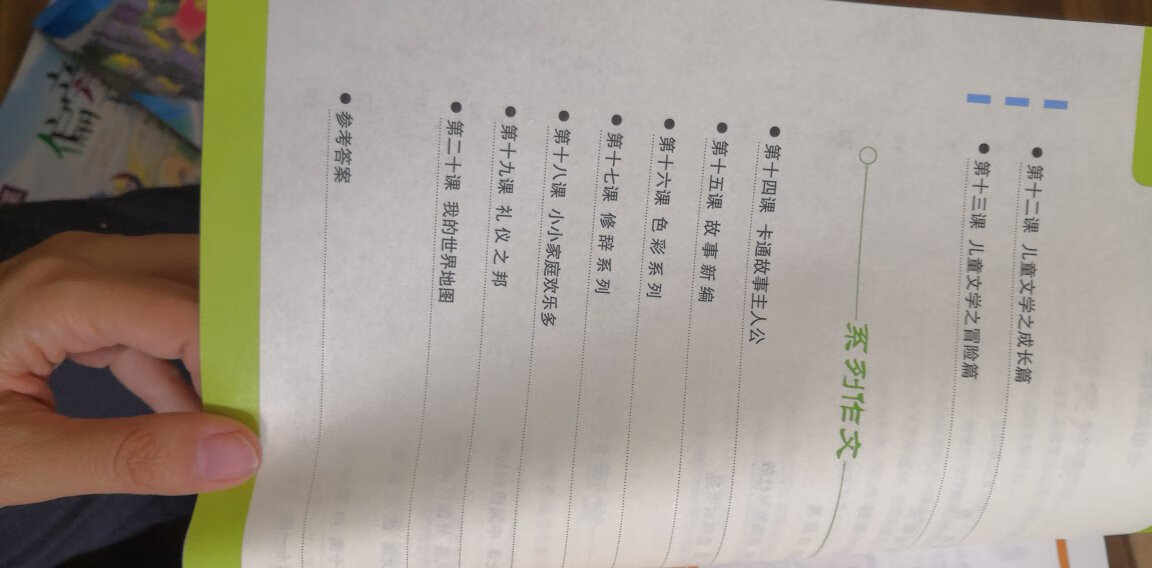 第十二课 儿童文学之成长篇
第十三课 儿童文学之冒险篇
系列作文
第十四课 卡通故事主人公
第十五课 故事新编
第十六课 色彩系列
第十七课 修辞系列
第十八课 小小家庭欢乐多
第十九课 礼仪之邦
第二十课 我的世界地图
参考答案